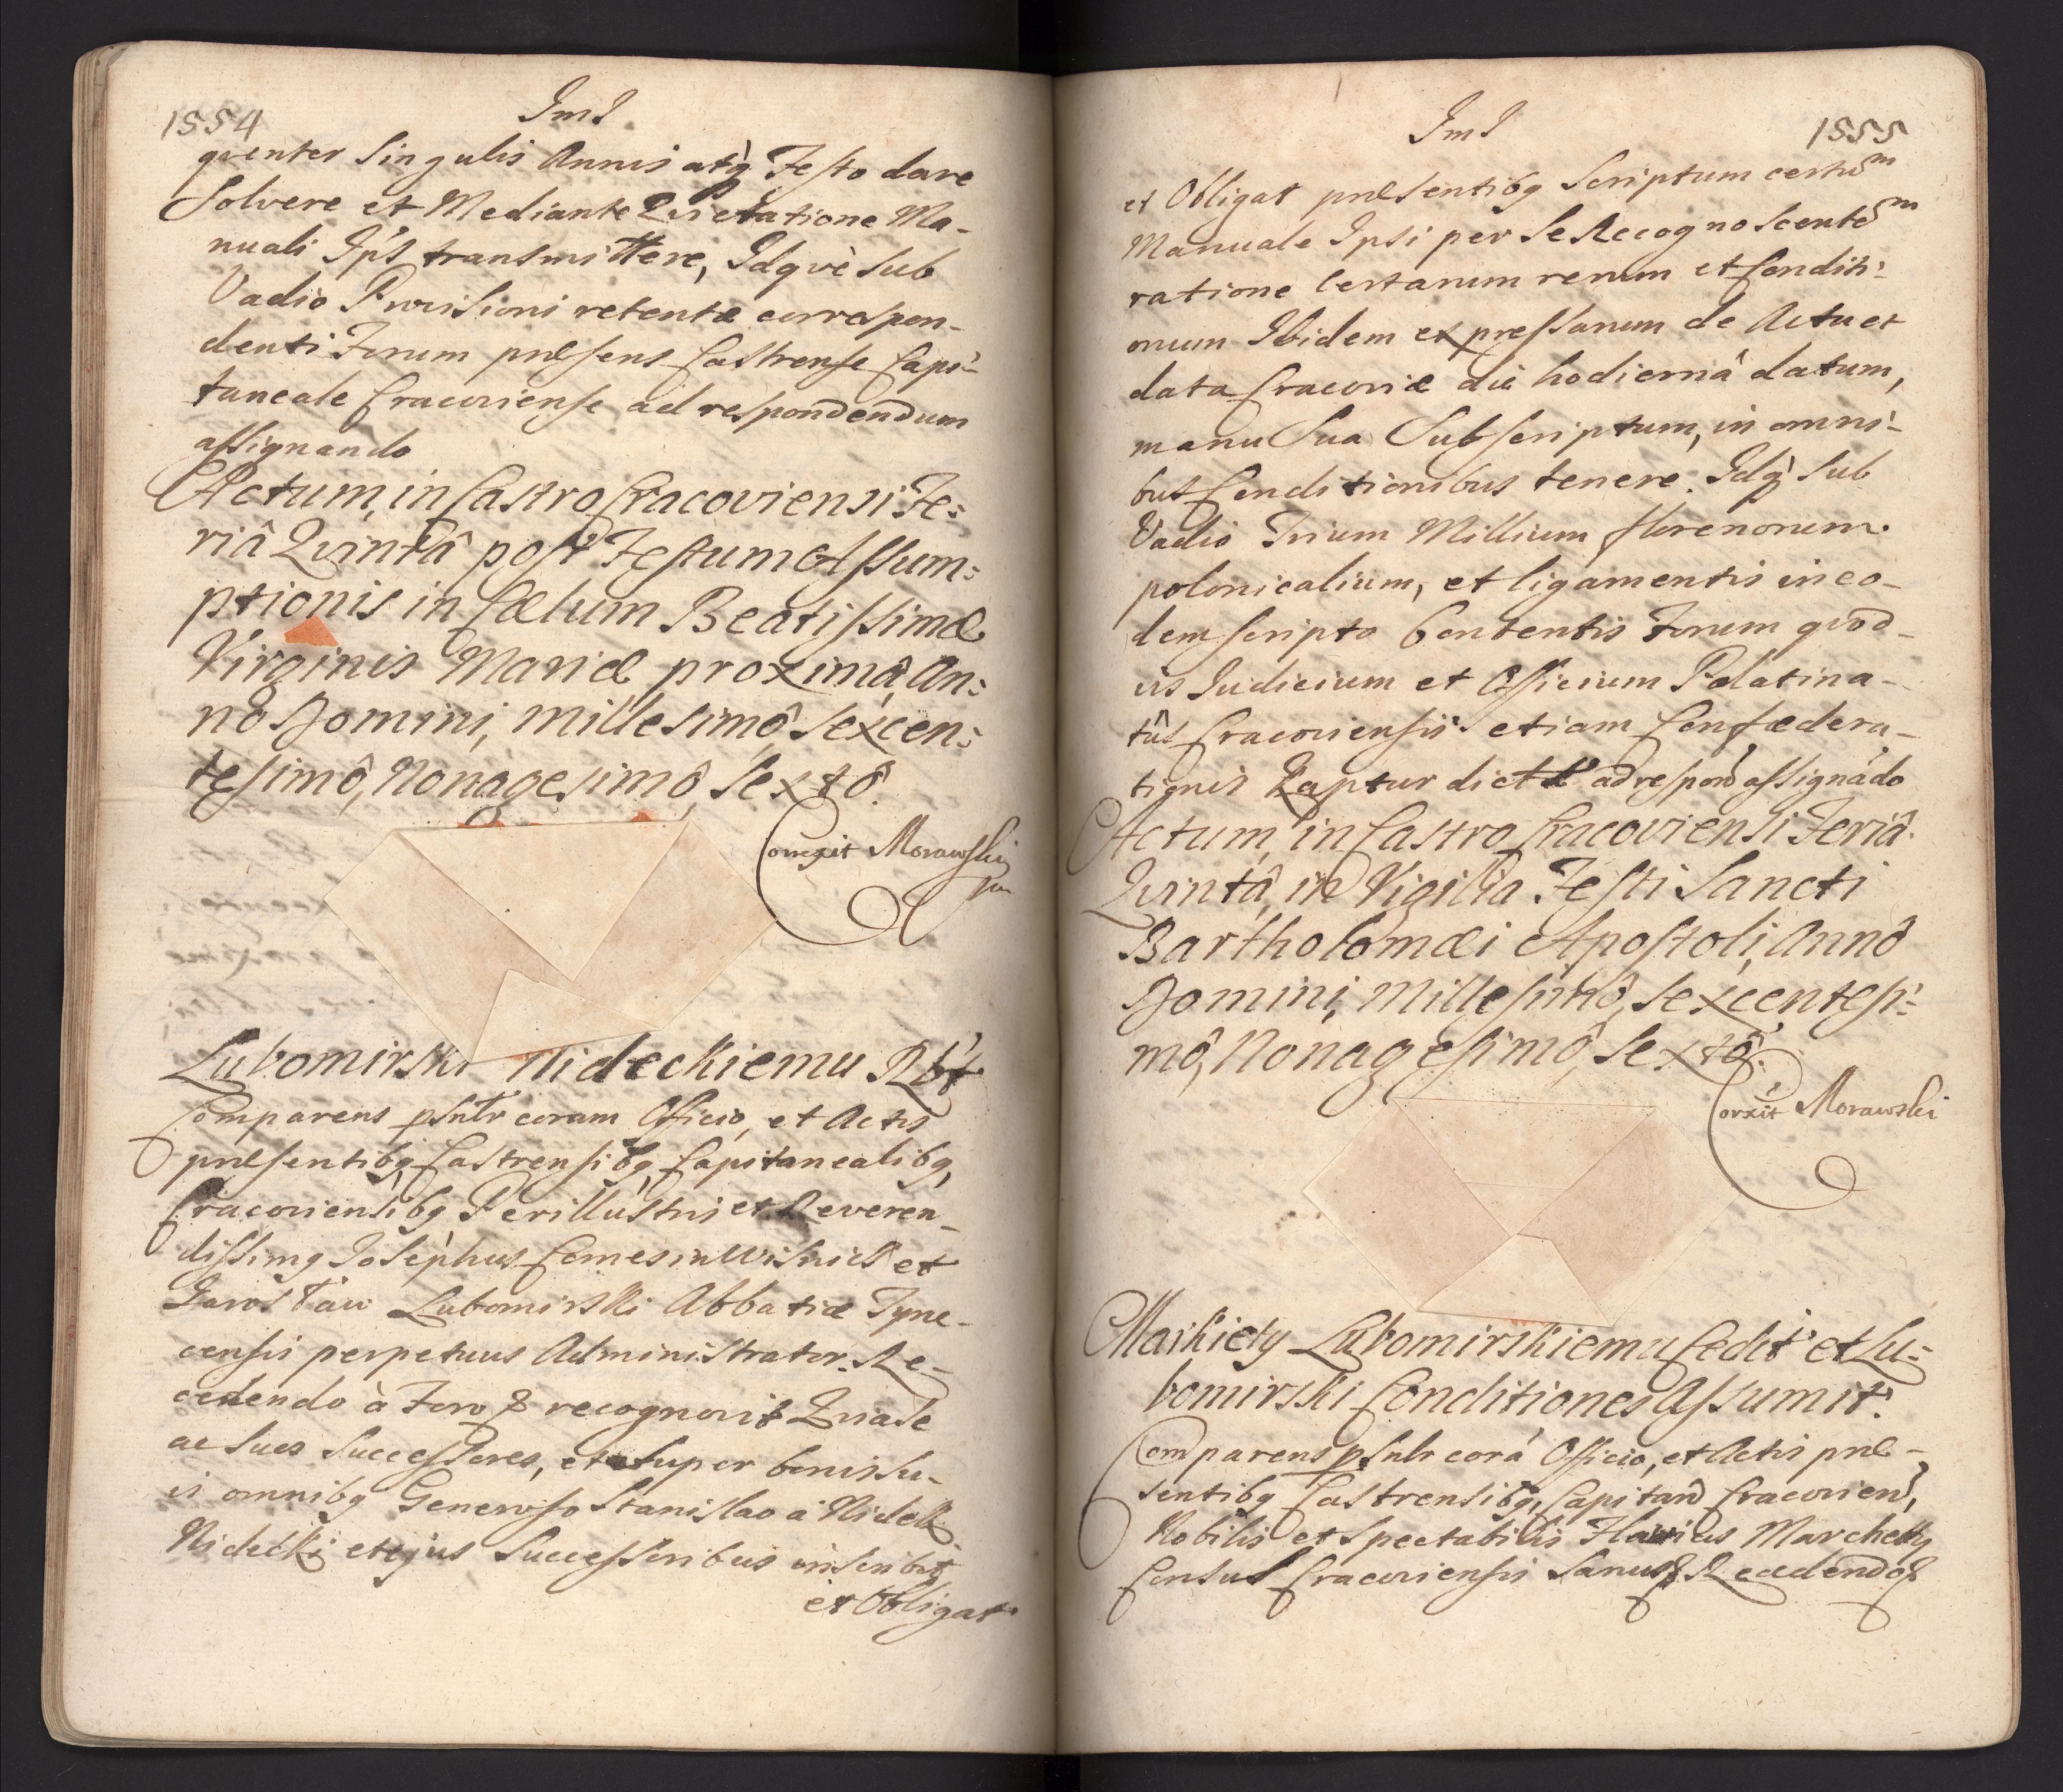 1554
JmJ
quenter Singulis Annis atq; Festo dare
Solvere et Mediante Quietatione Ma-
nuali Ips transmittere, Idquè sub
Vadio Provisioni retentæ correspon-
denti Forum præsens Castrense Capi-
taneale Cracoviense ad respondendum
assignando
Actum, in Castro Cracoviensi Fe:
riâ Quintâ post Festum Assum:
ptionis in Cælum Beatissimæ
Virginis Mariæ proximâ, An:
nô Domini, Millesimô, Sexcen:
tesimô, Nonagesimô, Sextô.
Correxit Morawski
mp
Lubomirski Nideckiemu Rbt
Comparens psntr coram Officio, et Actis
præsentibq, Castrensibq, Capitanealibq,
Cracoviensibq Perillustris et Reveren-
dissimq Josephus Comes in Wisnicz et
Jarosław Lubomirski Abbatiæ Tyne-
censis perpetuus Administrator. Re-
cedendo à Foro & recognovit Quia se
ac suos Successores, et super bonis su-
is omnibq Generoso Stanislao à Nidek
Nidecki et ejus Successoribus inscribit
et Obligat
JmJ
1555
et Obligat præsentibq Scriptum certum
Manuale Ipsi per Se Recognoscentem
ratione Certarum rerum et Conditi:
onum Ibidem expressarum de Actu et
data Cracoviæ die hodiernâ datum,
manu Sua Subscriptum, in omni-
bus Conditionibus tenere. Idq; Sub
Vadio Trium Millium florenorum
polonicalium, et ligamentis in eo-
dem scripto Contentis Forum quod-
vis Judicium et Officium Palatina-
tûs Cracoviensis etiam Confædera-
tionis Kaptur dictæ ad respond assignãdo
Actum, in Castro Cracoviensi Feriâ
Quintâ, in Vigilia Festi Sancti
Bartholomæi Apostoli, Annô
Domini, Millesimô, Sexcentesi:
mô, Nonagesimô, Sextô.
Corexit Morawski
Markiety Lubomirskiemu Cedit et Lu:
bomirski Conditiones Assumit.
Comparens psntr corã Officio, et Actis præ-
sentibq Castrensibq, Capitan Cracovien,
Nobilis et Spectabilis Flavius Marchetty
Consul Cracoviensis Sanus & Recedendo &